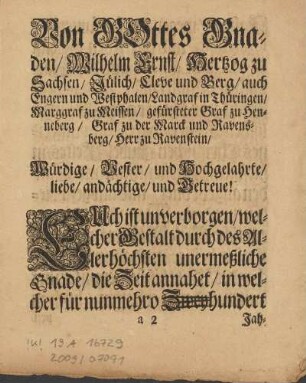 Von GOttes Gna-
den/ Wilhelm Ernst/ Hertzog zu
Sachsen/ Jülich/ Cleve und Berg/ auch
Engern und Westphalen/ Landgraf in Thüringen/
Marggraf zu Meissen/ gefürsteter Graf zu Hen-
neberg/ Graf zu der Marck und Ravens-
berg/ Herr zu Ravenstein/
Würdige/ Vester/ und Hochgelahrte/
liebe/ andächtige/ und Getreue!
EUch ist unverborgen/ wel-
cher Gestalt durch des Al-
lerhöchsten unermeßliche
Gnade/ die Zeit annahet/ in wel-
cher für nunmehro hundert
a 2
Jah-
19 A 16729
2009/07071